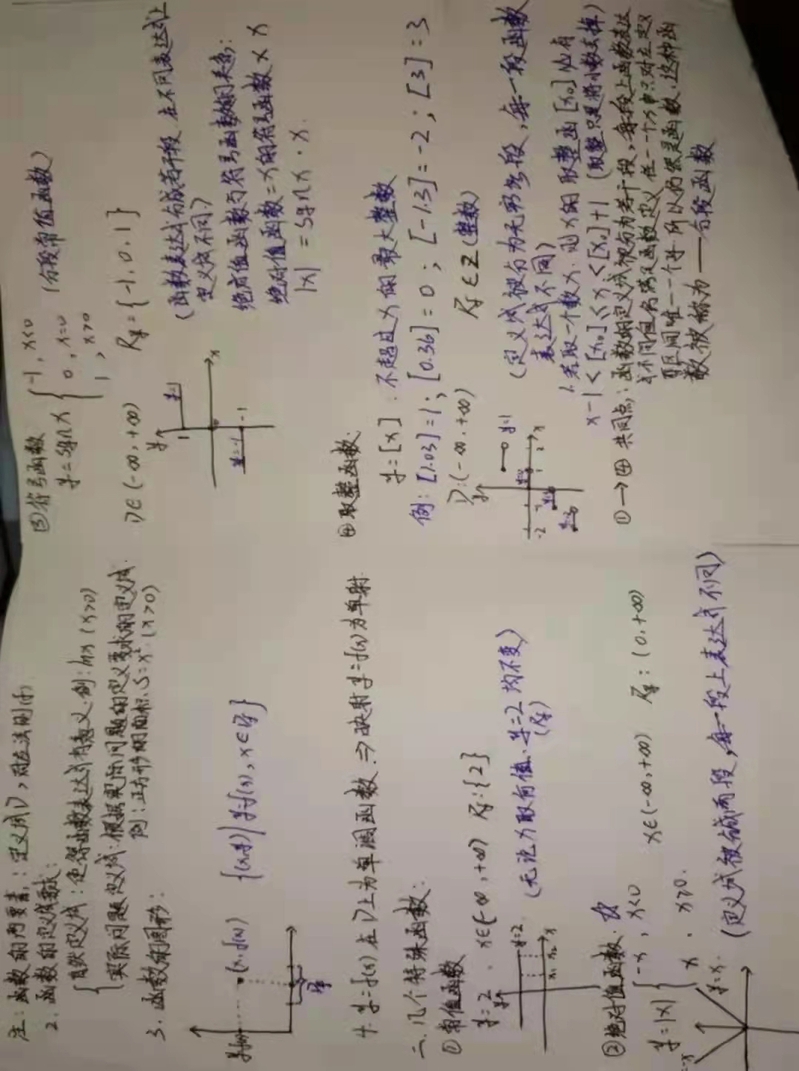 注：函数的两要素：定义域D，对应法则(f)
2. 函数的定义域要求：
自然定义域：使得函数表达式有意义.例：lnx (x>0)
实际问题定义域：根据实际问题的定义要求的定义域.
例：正方形的面积.S=x² (x>0)
3. 函数的图形：
(x,f(x)) {(x,y)|y=f(x),x∈D}
4. y=f(x)在D上为单调函数⇒映射y=f(x)为单射
二、几个特殊函数：
①常值函数
y=2 . x∈(-∞,+∞) Rf:{2}
y=2
(无论x取何值.y=2均不变)
(Rf)
②绝对值函数.
y=|x| {-x , x<0
x , x≥0.
x∈(-∞,+∞) Rf:(0,+∞)
y=-x y=x.
(定义域被分成两段,每一段上表达式不同)
③符号函数 (分段常值函数)
y=sgn x {-1, x<0
0, x=0
1, x>0
D∈(-∞,+∞) Rf={-1.0.1}
(函数表达式分成若干段 在不同表达式上
定义域不同)
绝对值函数与符号函数的关系:
绝对值函数=x的符号函数×x
|x| =Sgn x·x.
④取整函数:
y=[x] : 不超过x的最大整数
例:[1.03]=1; [0.36]=0; [-1.3]=-2; [3]=3
D:(-∞,+∞) Rf∈Z(整数)
(定义域被分为无穷多段,每一段函数
表达式不同)
1.若取一个数x.则x的取整函[x₀]必有
x-1<[x₀]≤x<[x₀]+1 (取整只是将小数去掉)
①→④共同点:函数的定义域被分为若干段,每段上函数表达
式不同但仍满足函数定义 任一个x都只对应定义
区间唯一一个y 所以仍然是函数,这种函
数被称为——分段函数